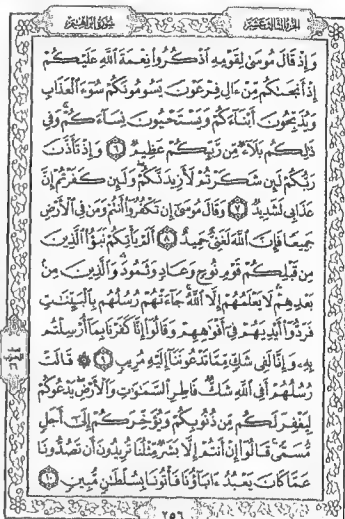 الجزء الثالث عشر سورة إبراهيم
وَإِذْ قَالَ مُوسَىٰ لِقَوْمِهِ ٱذْكُرُوا۟ نِعْمَةَ ٱللَّهِ عَلَيْكُمْ
إِذْ أَنجَىٰكُم مِّنْ ءَالِ فِرْعَوْنَ يَسُومُونَكُمْ سُوٓءَ ٱلْعَذَابِ
وَيُذَبِّحُونَ أَبْنَآءَكُمْ وَيَسْتَحْيُونَ نِسَآءَكُمْ ۚ وَفِى
ذَٰلِكُم بَلَآءٌ مِّن رَّبِّكُمْ عَظِيمٌ ٦ وَإِذْ تَأَذَّنَ
رَبُّكُمْ لَئِن شَكَرْتُمْ لَأَزِيدَنَّكُمْ ۖ وَلَئِن كَفَرْتُمْ إِنَّ
عَذَابِى لَشَدِيدٌ ٧ وَقَالَ مُوسَىٰٓ إِن تَكْفُرُوٓا۟ أَنتُمْ وَمَن فِى ٱلْأَرْضِ
جَمِيعًا فَإِنَّ ٱللَّهَ لَغَنِىٌّ حَمِيدٌ ٨ أَلَمْ يَأْتِكُمْ نَبَؤُا۟ ٱلَّذِينَ
مِن قَبْلِكُمْ قَوْمِ نُوحٍ وَعَادٍ وَثَمُودَ ۛ وَٱلَّذِينَ مِنۢ
بَعْدِهِمْ ۛ لَا يَعْلَمُهُمْ إِلَّا ٱللَّهُ ۚ جَآءَتْهُمْ رُسُلُهُم بِٱلْبَيِّنَٰتِ
فَرَدُّوٓا۟ أَيْدِيَهُمْ فِىٓ أَفْوَٰهِهِمْ وَقَالُوٓا۟ إِنَّا كَفَرْنَا بِمَآ أُرْسِلْتُم
بِهِۦ وَإِنَّا لَفِى شَكٍّ مِّمَّا تَدْعُونَنَآ إِلَيْهِ مُرِيبٍ ٩ ۞ قَالَتْ
رُسُلُهُمْ أَفِى ٱللَّهِ شَكٌّ فَاطِرِ ٱلسَّمَٰوَٰتِ وَٱلْأَرْضِ ۖ يَدْعُوكُمْ
لِيَغْفِرَ لَكُم مِّن ذُنُوبِكُمْ وَيُؤَخِّرَكُمْ إِلَىٰٓ أَجَلٍ
مُّسَمًّى ۚ قَالُوٓا۟ إِنْ أَنتُمْ إِلَّا بَشَرٌ مِّثْلُنَا تُرِيدُونَ أَن تَصُدُّونَا
عَمَّا كَانَ يَعْبُدُ ءَابَآؤُنَا فَأْتُونَا بِسُلْطَٰنٍ مُّبِينٍ ١٠
٢٥٦